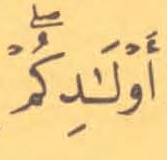 أَوْلَـٰدِكُمْۖ